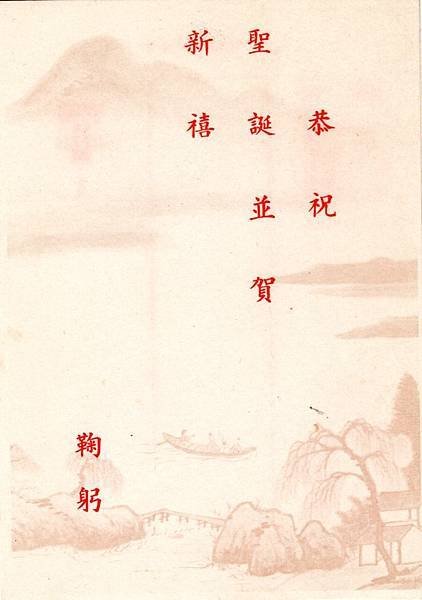 恭祝
聖誕並賀
新禧
鞠躬